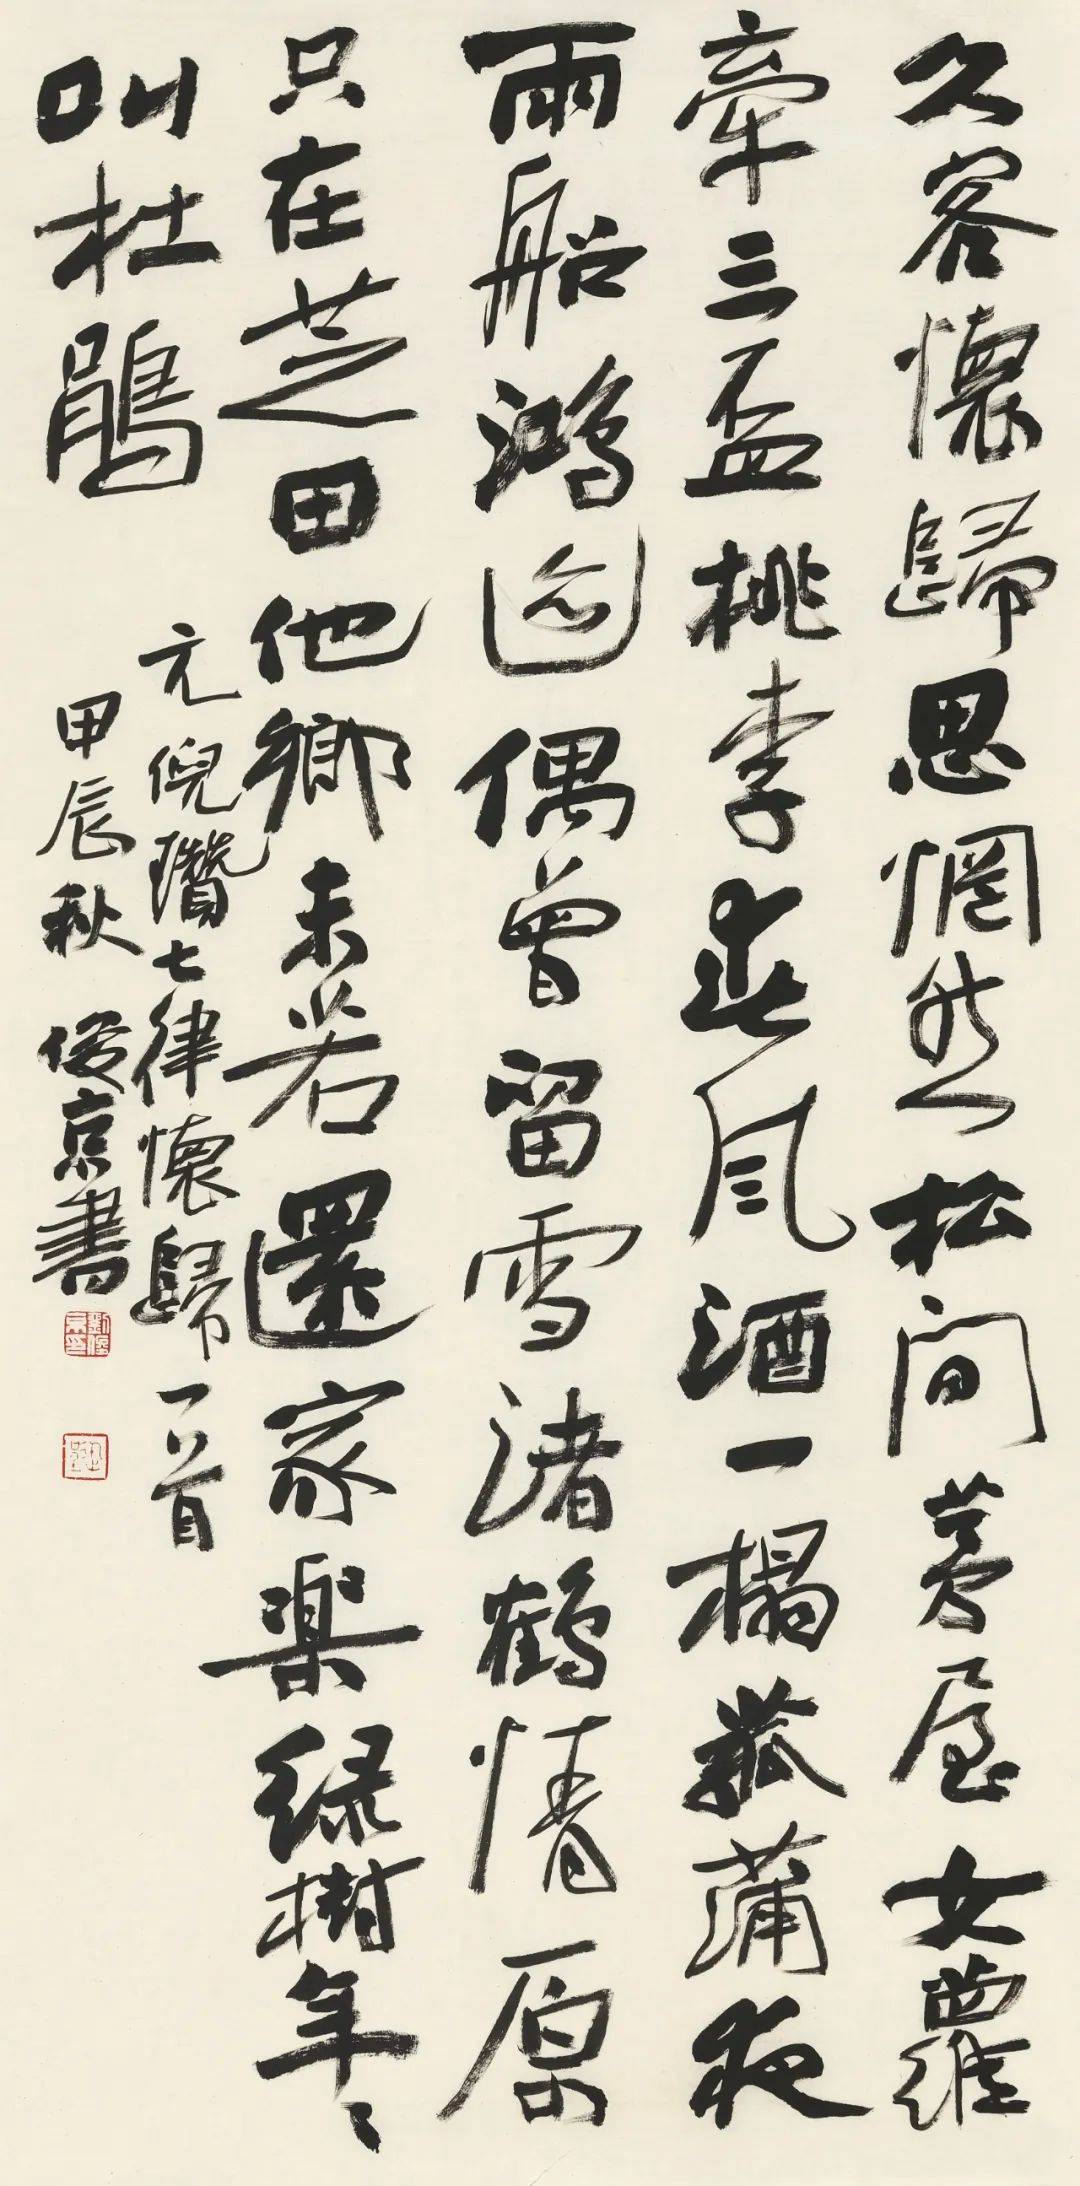 久客懷歸思惘然松間茅屋女蘿
牽三盃桃李春風酒一榻菰蒲夜
雨船鴻迹偶曾留雪渚鶴情原
只在芝田他鄉未若還家樂綠樹年〻
叫杜鵑
元倪瓚七律懷歸一首
甲辰秋俊京書
劉俊京印